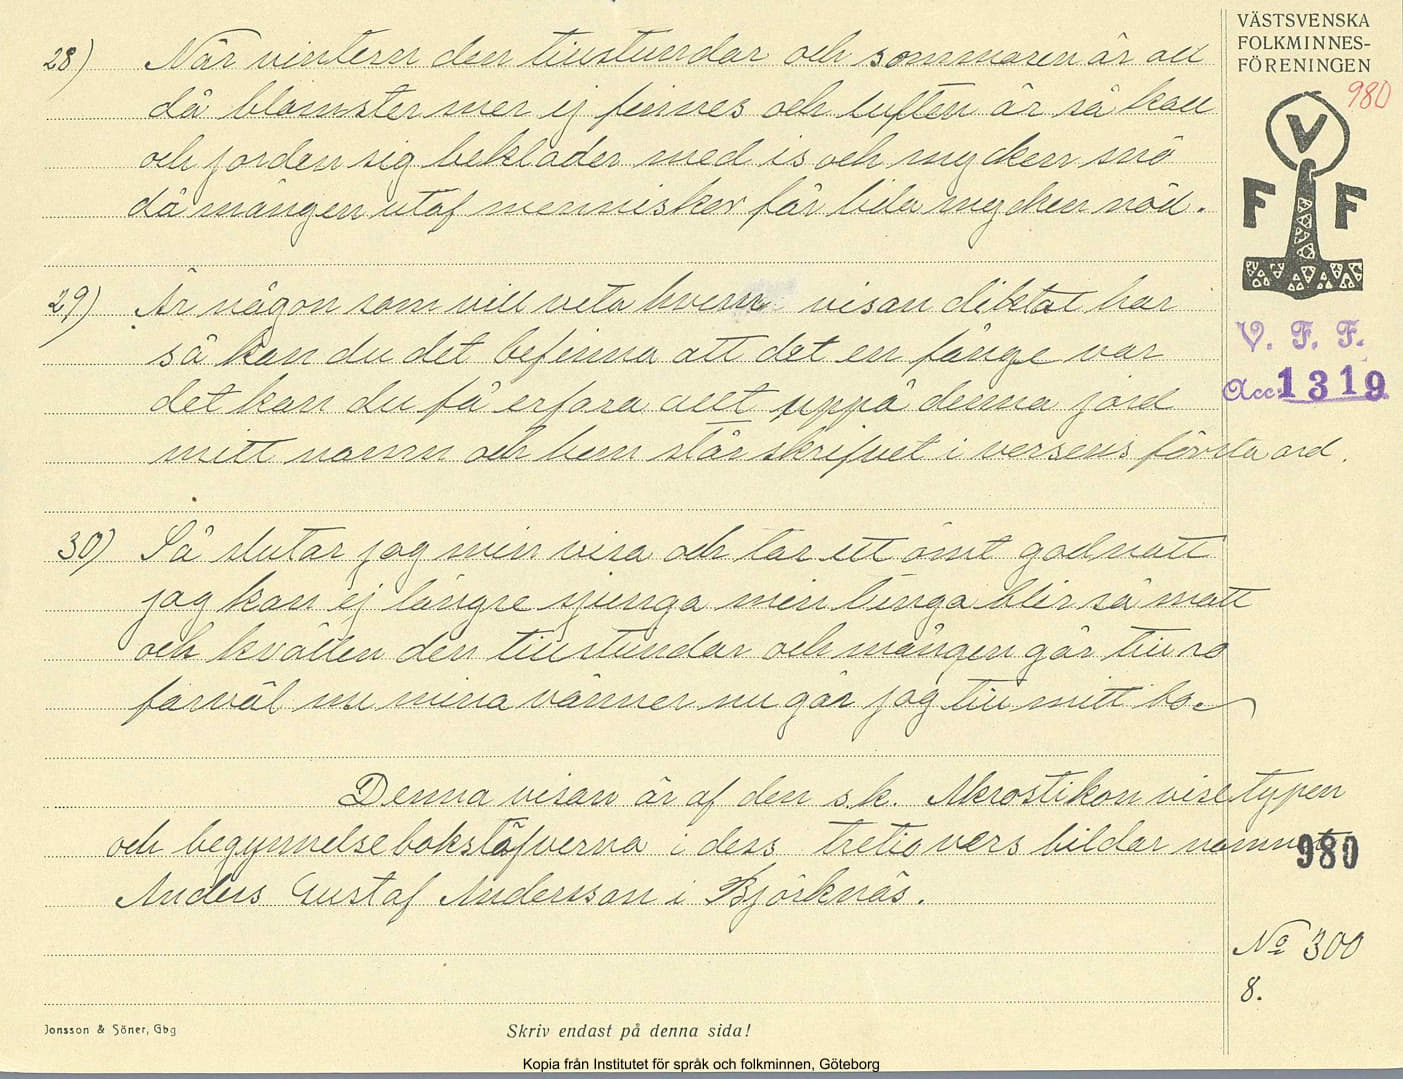 VÄSTSVENSKA
FOLKMINNES-
FÖRENINGEN
980
V
F F
V. F. F.
Acc. 1319
28) När vintern den tillstundar och sommaren är all
då blomster mer ej finnes och luften är så kall
och jorden sig bekläder med is och mycken snö
då mången utaf menniskor får lida mycken nöd.
29) Är någon som vill veta hvem visan diktat har
så kan du det befinna att det en fånge var
det kan du få erfara allt uppå denna jord
mitt namn och hem står skrifvet i versens första ord.
30) Så slutar jag min visa och tar ett ömt godnatt
jag kan ej längre sjunga min tunga blir så matt
och kvällen den tillstundar och mången går till ro
farväl nu mina vänner nu går jag till mitt bo.
Denna visan är af den s.k. Akrostikon visetypen
och begynnelsebokstäfverna i dess tretio vers bildar namnet
980
Anders Gustaf Andersson i Björknäs.
No 300
8.
Jonsson & Söner, Gbg
Skriv endast på denna sida!
Kopia från Institutet för språk och folkminnen, Göteborg